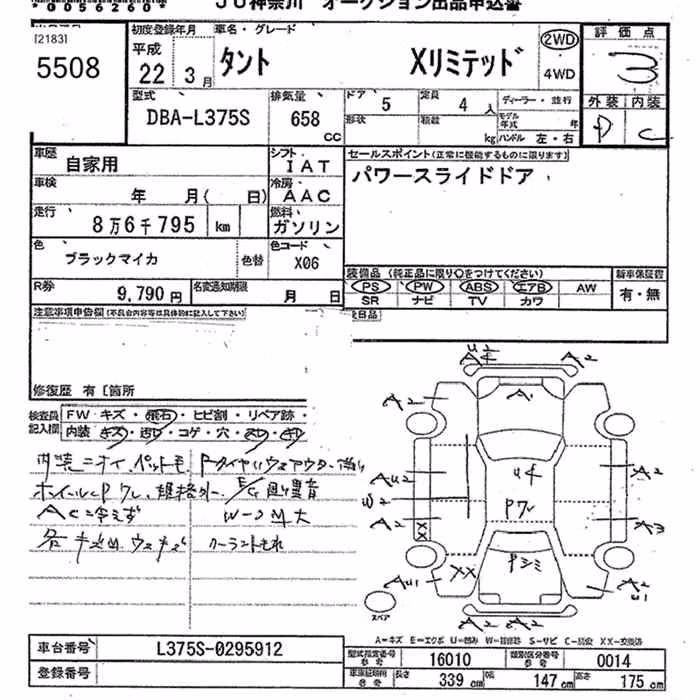 *0056260*
JU神奈川 オークション出品申込書
[2183]
5508
初度登録年月 車名・グレード
平成
22 3月 タント Xリミテッド
2WD
4WD
評価点
3
型式 排気量 ドア 定員 ディーラー・並行
DBA-L375S 658 CC 5 4人
形状 積載 kg モデル年式 年 ハンドル 左・右
外装 内装
D C
車歴 自家用 シフト IAT
セールスポイント(正常に機能するものに限ります)
パワースライドドア
車検 年 月( 日) 冷房 AAC
走行 8万6千795 km 燃料 ガソリン
色 ブラックマイカ 色替 色コード X06
装備品 (純正品に限り○をつけてください) 新車保証書
PS PW ABS エアB AW 有・無
SR ナビ TV カワ
R券 9,790円 名変通知期限 月 日
注意事項申告欄(不具合内容等は具体的に記入して下さい)
修復歴 有 [箇所
検査員記入欄
FW キズ・飛石・ヒビ割・リペア跡・
内装
コゲ・穴・
内装ニオイ、ペット毛
ホイールCPワレ、規格外
ACン冷えず
W-ンM大
クーラントもれ
U2
A4 A2
A2 A1 A2
AU2 U4 A2
W2 Pワレ
A2 XX A3
AU1 XX Pシミ A2
U1
A2 A2
スペア
A=キズ E=エクボ U=凹み W=補修跡 S=サビ C=腐食 XX=交換済
車台番号 L375S-0295912
登録番号
型式指定番号 参考 16010 類別区分番号 参考 0014
車庫証明用 参考 長さ 339 cm 幅 147 cm 高さ 175 cm